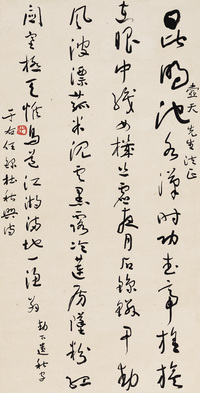 壺天先生法正
昆明池水漢時功武帝旌旗
在眼中織女機絲虛夜月石鯨鱗甲動
風波漂菰米沉雲黑露冷蓮房墜粉紅
關塞極天惟鳥道江湖滿地一漁翁
動下遺秋字
于右任